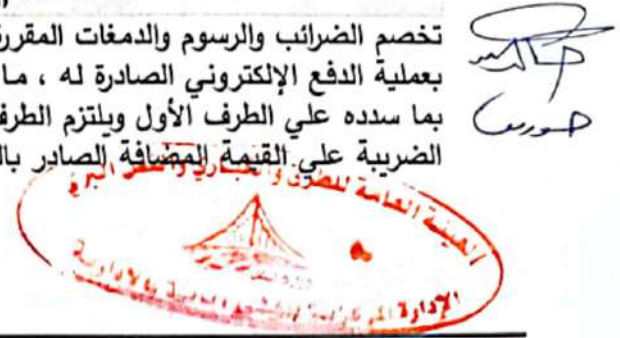 تخصم الضرائب والرسوم والدمغات المقرر
بعملية الدفع الإلكتروني الصادرة له ، ما
بما سدده علي الطرف الأول ويلتزم الطرف
الضريبة علي القيمة المضافة الصادر بال
الهيئة العامة للطرق والكباري والنقل البري
الإدارة المركزية للشئون المالية والإدارية